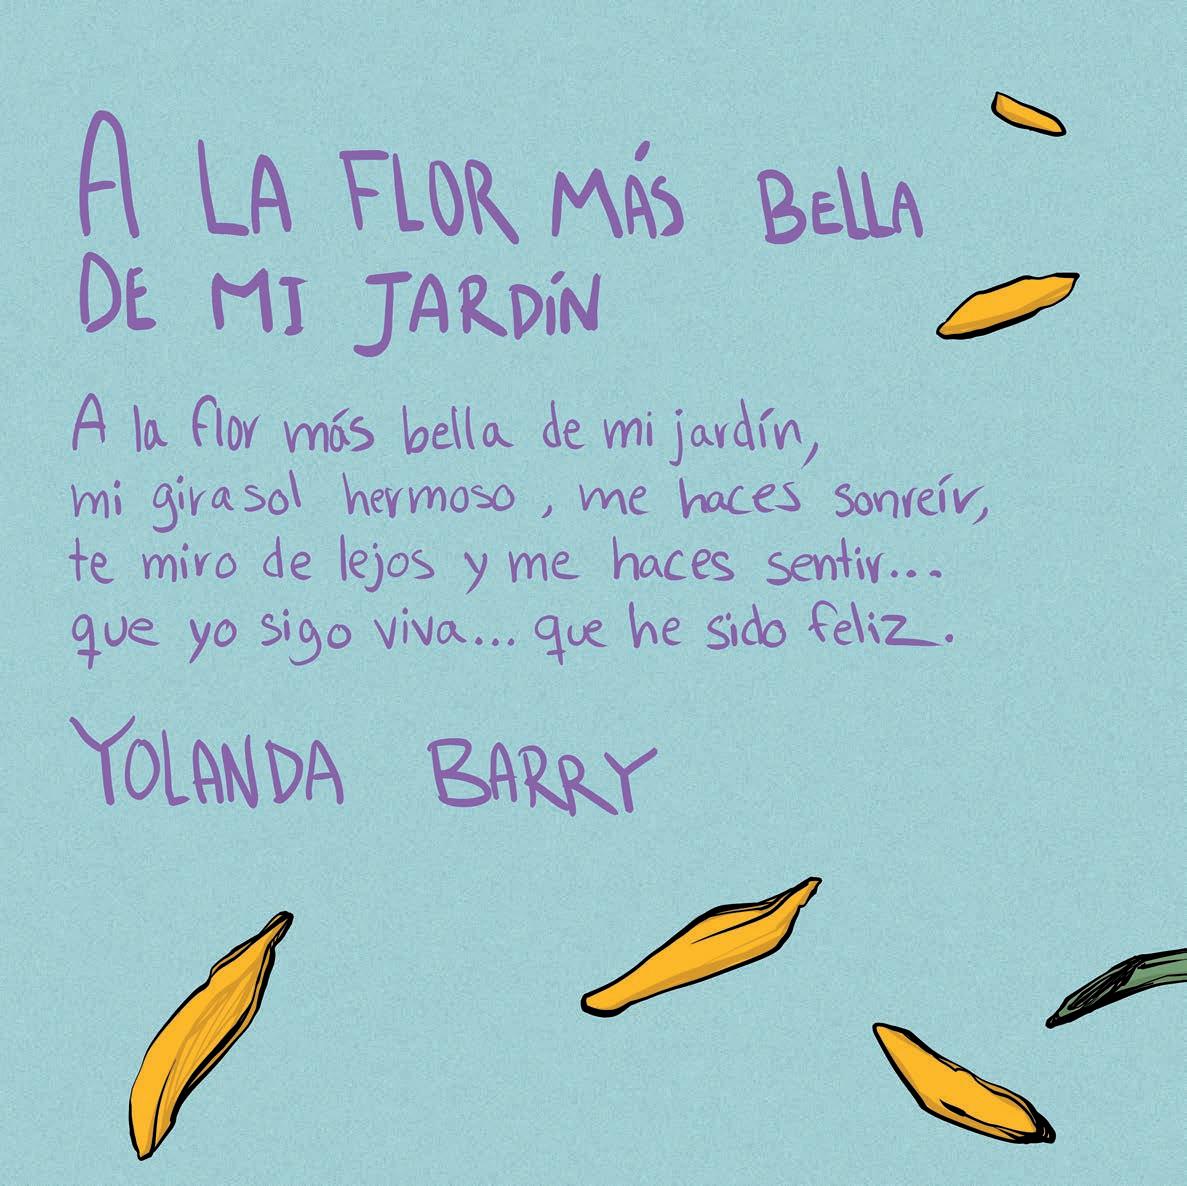 A LA FLOR MÁS BELLA
DE MI JARDÍN
A la flor más bella de mi jardín,
mi girasol hermoso, me haces sonreír,
te miro de lejos y me haces sentir...
que yo sigo viva... que he sido feliz.
YOLANDA BARRY